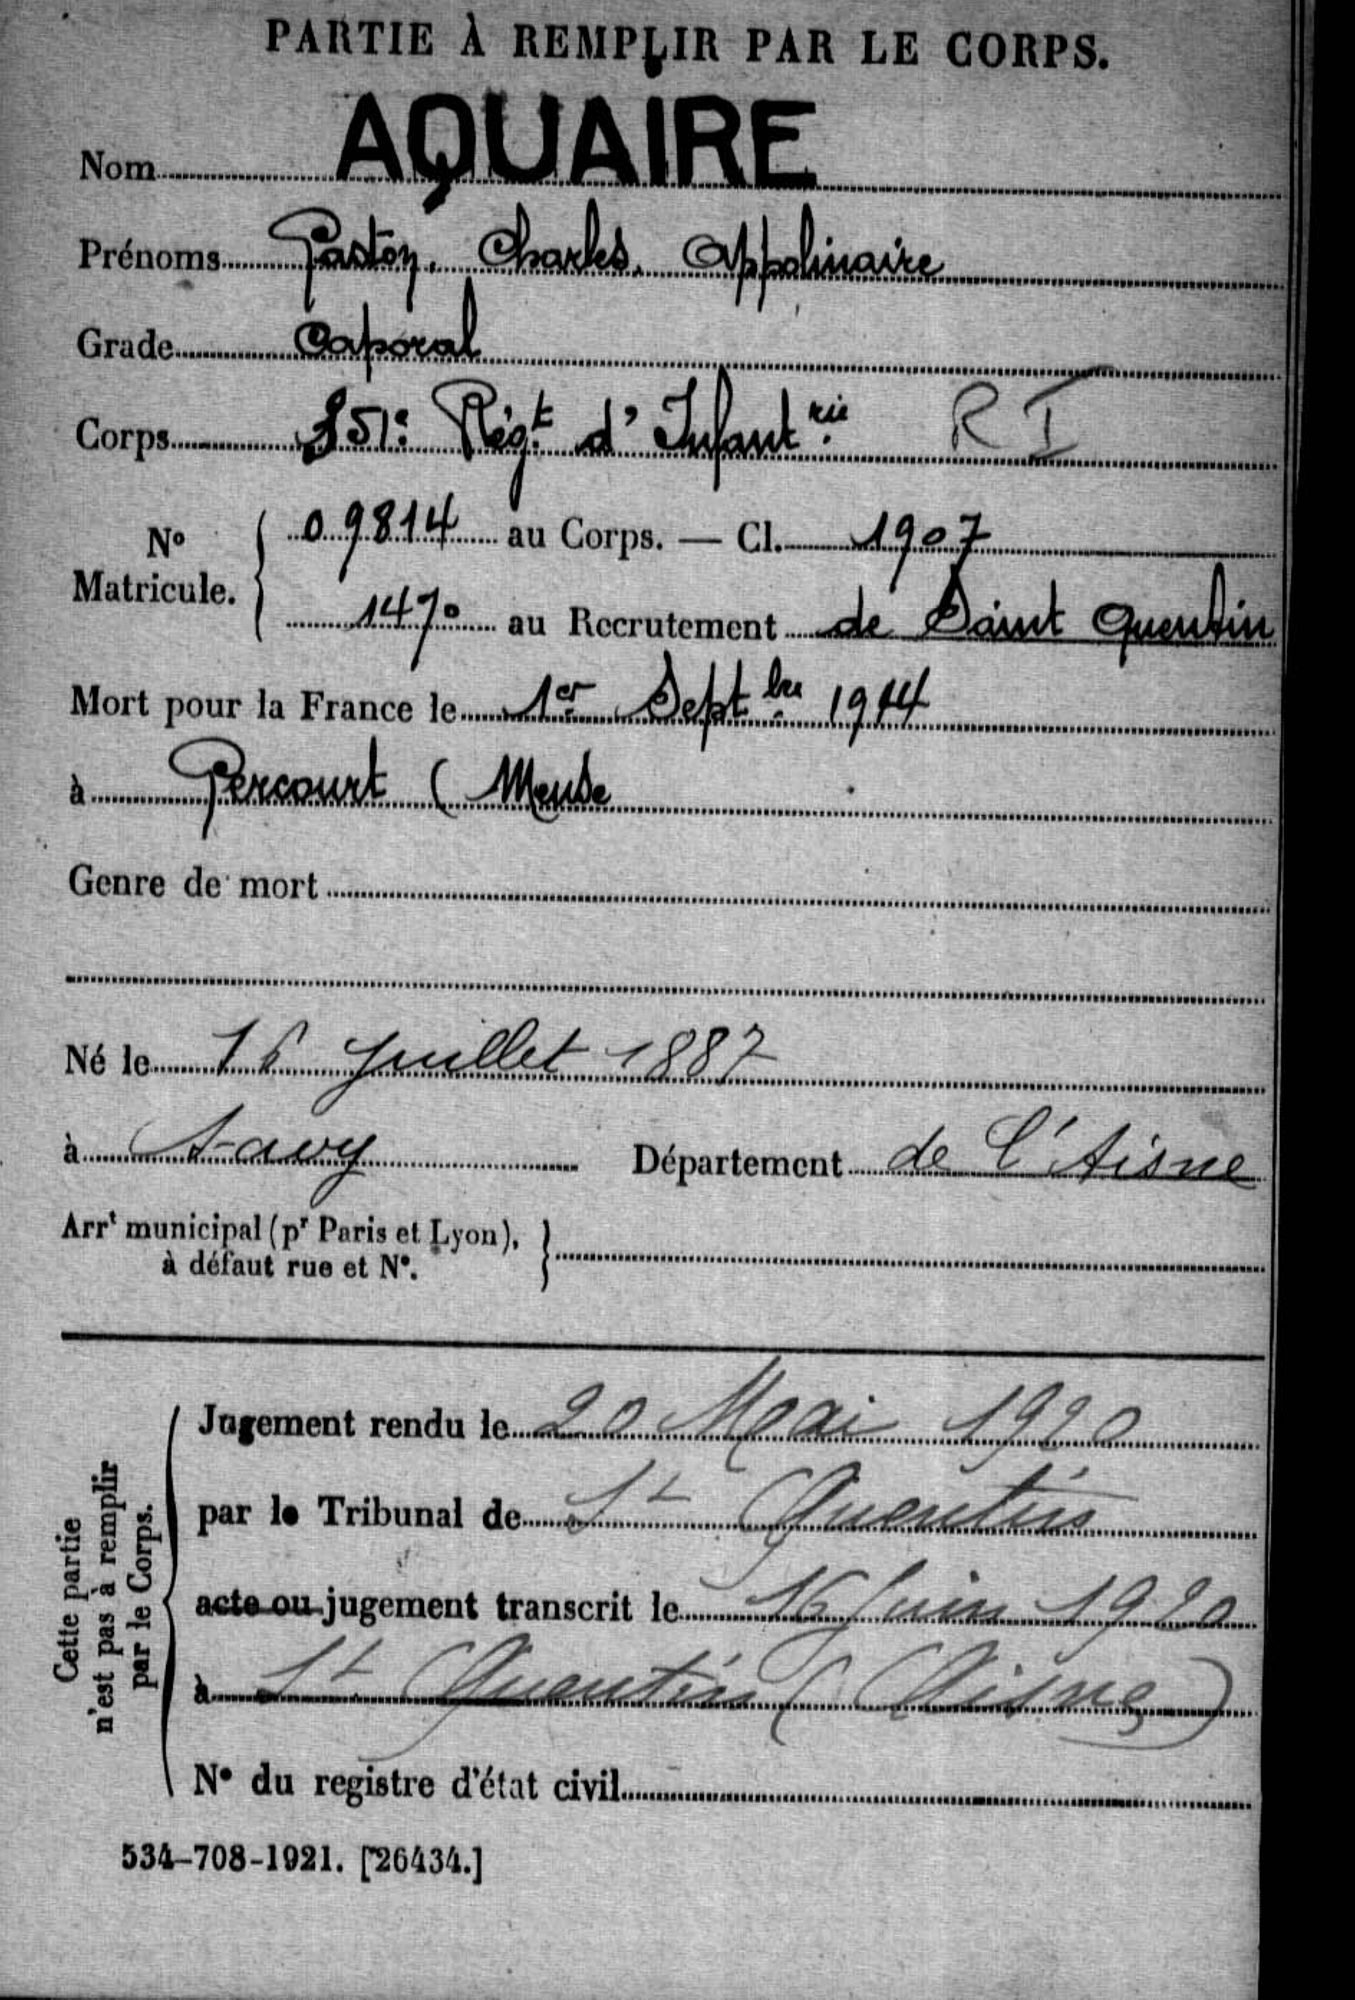 PARTIE À REMPLIR PAR LE CORPS.
Nom AQUAIRE
Prénoms Gaston, Charles, Appolinaire
Grade Caporal
Corps 351e Régt d'Infantrie R I
No Matricule. { 09814 au Corps. — Cl. 1907
1470 au Recrutement de Saint Quentin
Mort pour la France le 1er Septbre 1914
à Gercourt (Meuse
Genre de mort
Né le 16 Juillet 1887
à Savy Département de l'Aisne
Arrt municipal (pr Paris et Lyon),
à défaut rue et No.
Cette partie
n'est pas à remplir
par le Corps.
Jugement rendu le 20 Mai 1920
par le Tribunal de St Quentin
acte ou jugement transcrit le 16 Juin 1920
à St Quentin (Aisne)
No du registre d'état civil
534-708-1921. [26434.]